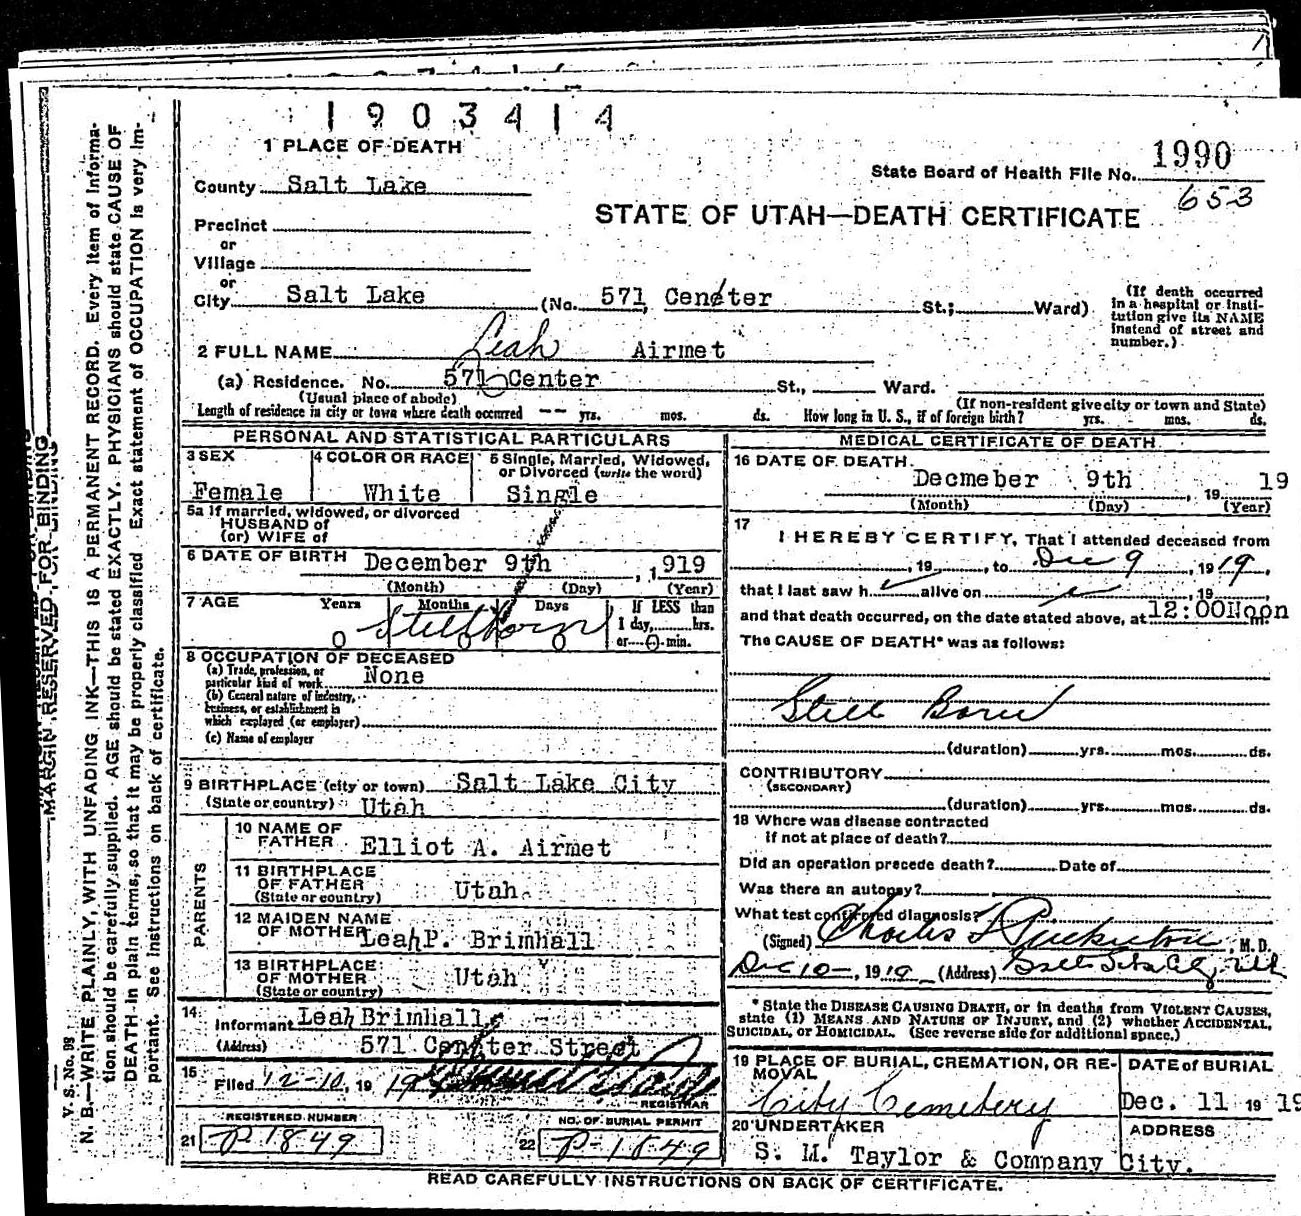 1903414
1 PLACE OF DEATH
State Board of Health File No. 1990
653
County Salt Lake
STATE OF UTAH—DEATH CERTIFICATE
Precinct
or
Village
or
City Salt Lake (No. 571 Center St.; Ward)
(If death occurred in a hospital or institution give its NAME instead of street and number.)
2 FULL NAME Leah Airmet
(a) Residence. No. 571 Center St., Ward.
(Usual place of abode) (If non-resident give city or town and State)
Length of residence in city or town where death occurred -- yrs. mos. ds. How long in U. S., if of foreign birth? yrs. mos. ds.
PERSONAL AND STATISTICAL PARTICULARS
3 SEX 4 COLOR OR RACE 5 Single, Married, Widowed, or Divorced (write the word)
Female White Single
5a If married, widowed, or divorced
HUSBAND of
(or) WIFE of
6 DATE OF BIRTH December 9th, 1919
(Month) (Day) (Year)
7 AGE Years Months Days If LESS than
1 day, hrs.
0 0 0 or 0 min.
Stillborn
8 OCCUPATION OF DECEASED
(a) Trade, profession, or
particular kind of work None
(b) General nature of industry,
business, or establishment in
which employed (or employer)
(c) Name of employer
9 BIRTHPLACE (city or town) Salt Lake City
(State or country) Utah
PARENTS
10 NAME OF
FATHER Elliot A. Airmet
11 BIRTHPLACE
OF FATHER
(State or country) Utah
12 MAIDEN NAME
OF MOTHER Leah P. Brimhall
13 BIRTHPLACE
OF MOTHER
(State or country) Utah
14 Informant Leah Brimhall
(Address) 571 Center Street
15 Filed 12-10, 1919
REGISTRAR
REGISTERED NUMBER
21 P 1849
NO. OF BURIAL PERMIT
22 P-1849
MEDICAL CERTIFICATE OF DEATH
16 DATE OF DEATH
Decmeber 9th, 19 19
(Month) (Day) (Year)
17 I HEREBY CERTIFY, That I attended deceased from
, 19 , to Dec 9, 1919,
that I last saw h alive on , 19 ,
and that death occurred, on the date stated above, at 12:00Noon m.
The CAUSE OF DEATH* was as follows:
Still Born
(duration) yrs. mos. ds.
CONTRIBUTORY
(SECONDARY)
(duration) yrs. mos. ds.
18 Where was disease contracted
if not at place of death?
Did an operation precede death? Date of
Was there an autopsy?
What test confirmed diagnosis?
(Signed) Charles F Pinkerton, M. D.
Dec 10, 1919 (Address) Salt Lake City, Utah
*State the DISEASE CAUSING DEATH, or in deaths from VIOLENT CAUSES,
state (1) MEANS AND NATURE OF INJURY, and (2) whether ACCIDENTAL,
SUICIDAL, or HOMICIDAL. (See reverse side for additional space.)
19 PLACE OF BURIAL, CREMATION, OR REMOVAL DATE of BURIAL
City Cemetery Dec. 11 19 19
20 UNDERTAKER ADDRESS
S. M. Taylor & Company City.
READ CAREFULLY INSTRUCTIONS ON BACK OF CERTIFICATE.
MARGIN RESERVED FOR BINDING
V. S. No. 98
N. B.—WRITE PLAINLY, WITH UNFADING INK—THIS IS A PERMANENT RECORD. Every item of information
should be carefully supplied. AGE should be stated EXACTLY. PHYSICIANS should state CAUSE OF
DEATH in plain terms, so that it may be properly classified. Exact statement of OCCUPATION is very important.
See instructions on back of certificate.